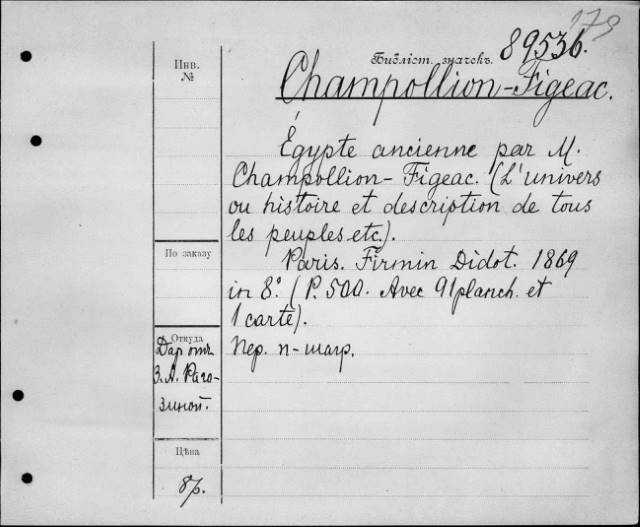 179
Инв.
№
Библіот. значекъ. 89536.
Champollion-Figeac.
Égypte ancienne par M.
Champollion-Figeac. (L'univers
ou histoire et description de tous
les peuples etc.).
По заказу
Paris. Firmin Didot. 1869
in 8.° (P. 500. Avec 91 planch. et
1 carte).
Откуда
Даръ отъ
З. А. Раго-
зиной.
Пер. п-шагр.
Цѣна
8р.